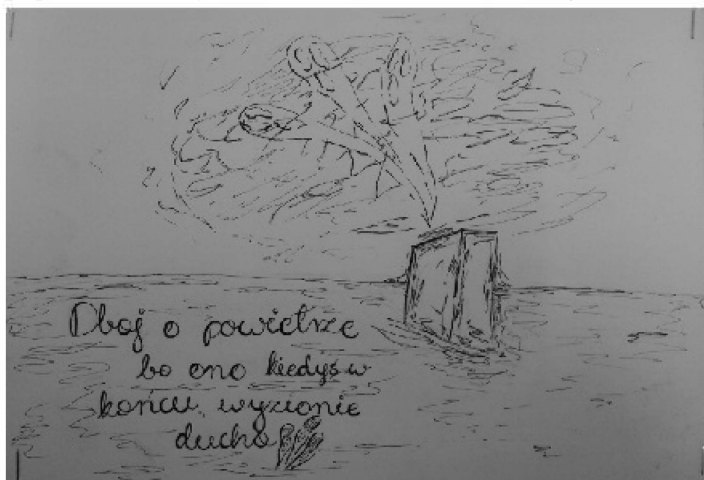 Dbaj o powietrze
bo ono kiedyś w
końcu wyzionie
ducha